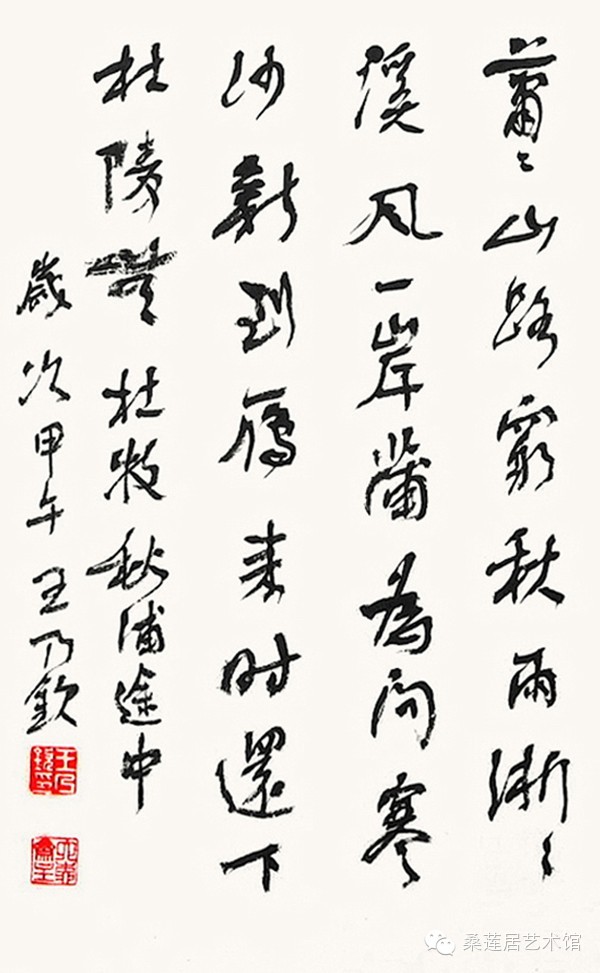 蕭〻山路窮秋雨淅〻
溪风一岸蒲為问寒
沙新到雁来时還下
杜陵無 杜牧秋浦途中
歲次甲午王乃欽
王乃欽印
桑莲居艺术馆